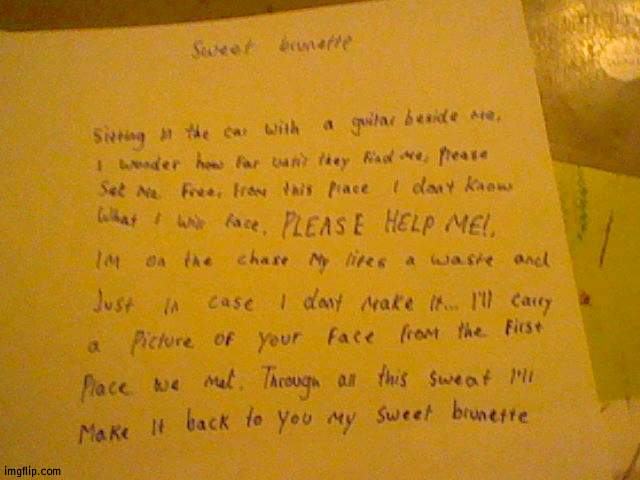 Sweet brunette
Sitting in the car with a guitar beside me,
I wonder how far until they find me, Please
Set me free, from this place I dont know
What I will face, PLEASE HELP ME!,
Im on the chase my lifes a waste and
Just in case I dont make it... I'll carry
a Picture of your face from the first
Place we met. Through all this sweat I'll
Make it back to you my sweet brunette
imgflip.com